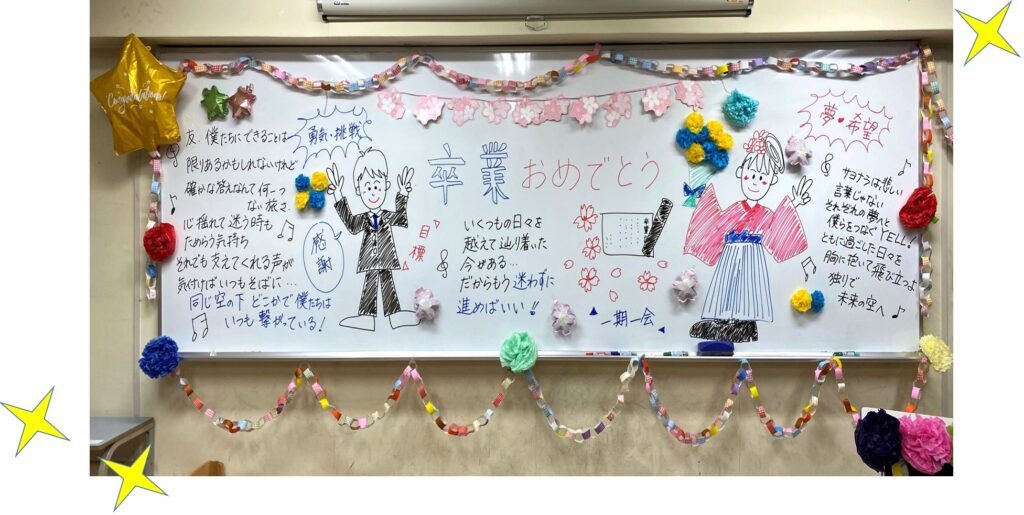 Congratulations!
友、僕たちにできることは
限りあるかもしれないけれど
確かな答えなんて何一つ
ない旅さ
心揺れて迷う時も
ためらう気持ち
それでも支えてくれる声が
気付けばいつもそばに…
同じ空の下 どこかで僕たちは
いつも繋がっている!
勇気・挑戦
感謝
目標
卒業おめでとう
いくつもの日々を
越えて辿り着いた
今がある…
だからもう迷わずに
進めばいい!!
一期一会
夢・希望
サヨナラは悲しい
言葉じゃない
それぞれの夢へと
僕らをつなぐYELL!
ともに過ごした日々を
胸に抱いて飛び立つよ
独りで
未来の空へ